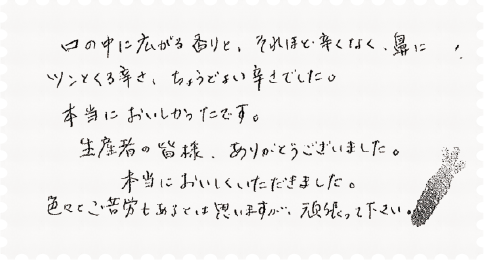 口の中に広がる香りと、それほど辛くなく、鼻に
ツンとくる辛さ、ちょうどよい辛さでした。
本当においしかったです。
生産者の皆様、ありがとうございました。
本当においしくいただきました。
色々とご苦労もあるとは思いますが、頑張って下さい。